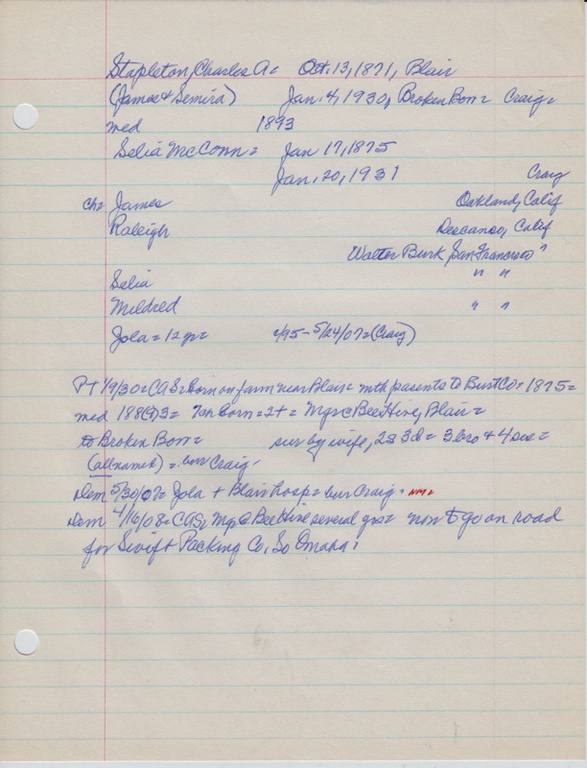 Stapleton, Charles A= Oct. 13, 1871, Blair
(James & Semira) Jan. 4, 1930, Broken Bow= Craig=
med 1893
Selia McConn= Jan 17, 1875
Jan. 20, 1931 Craig
ch= James Oakland, Calif
Raleigh Descanso, Calif
Walter Burk, San Francisco "
Selia " "
Mildred " "
Jola=12 yr= 2/95-5/24/07=(Craig)
PT 1/9/30=CAS=born on farm near Blair= with parents to Burt Co= 1875=
med 188(9)3= Ten born=2+= Mgr Bee Hive, Blair=
to Broken Bow= sur by wife, 2s 3d= 3 bro & 4 sis=
(all named)= bur Craig-
Dem 5/30/07= Jola + Blair hosp= bur Craig=
Dem 4/16/08=CAS, Mgr Bee Hive several yrs= now to go on road
for Swift Packing Co, So Omaha=